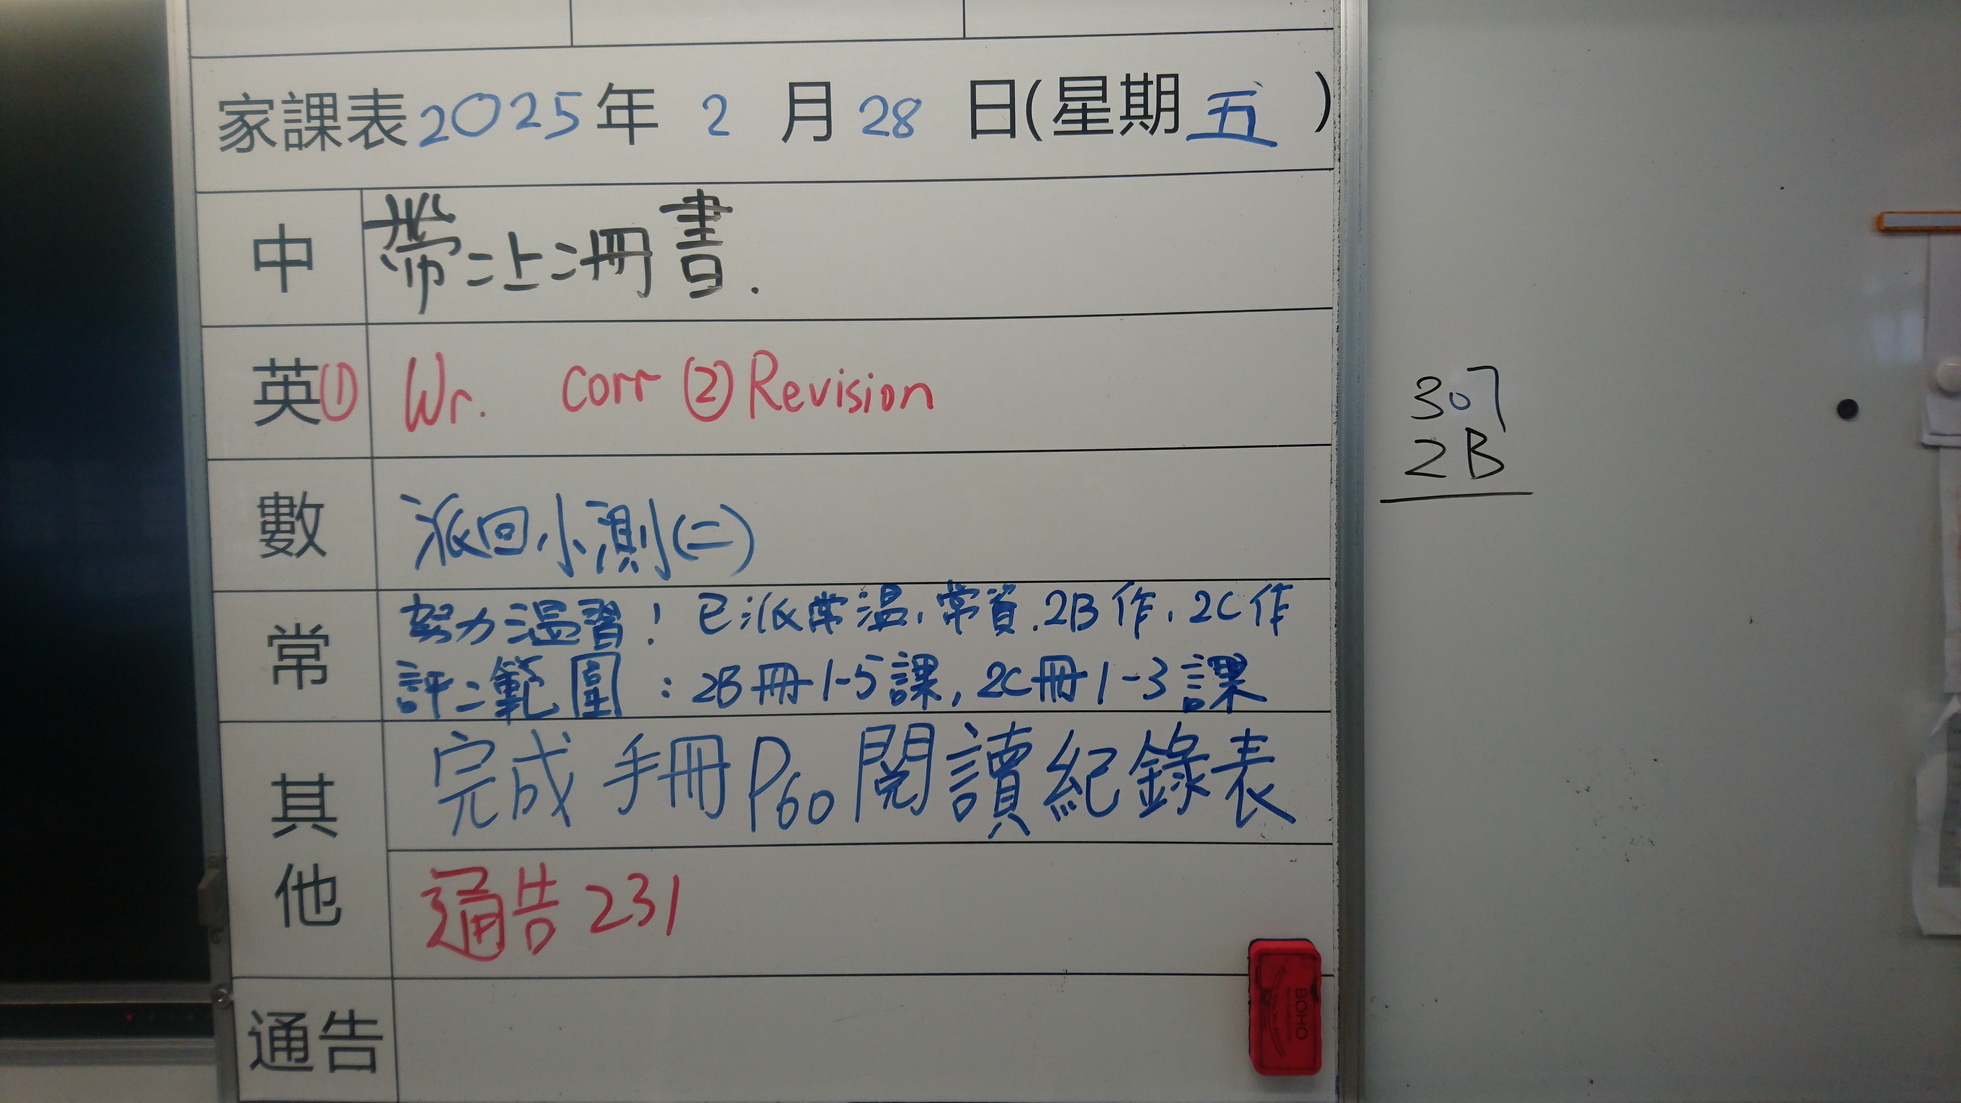 家課表2025年 2 月 28 日(星期五)
中 帶二上二冊書.
英 ① Wr. corr ② Revision
數 派回小測(二)
常 努力溫習! 已派常溫, 常資. 2B作, 2C作
評二範圍 : 2B冊1-5課, 2C冊1-3課
其他 完成手冊P60閱讀紀錄表
通告231
通告
307
2B
BOHO